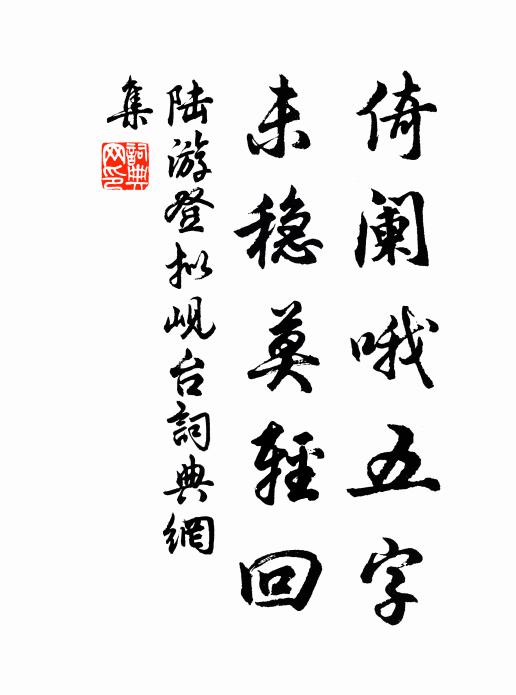 倚阑哦五字
未稳莫輕回
陆游登拟岘台詞典網
集
詞典网印